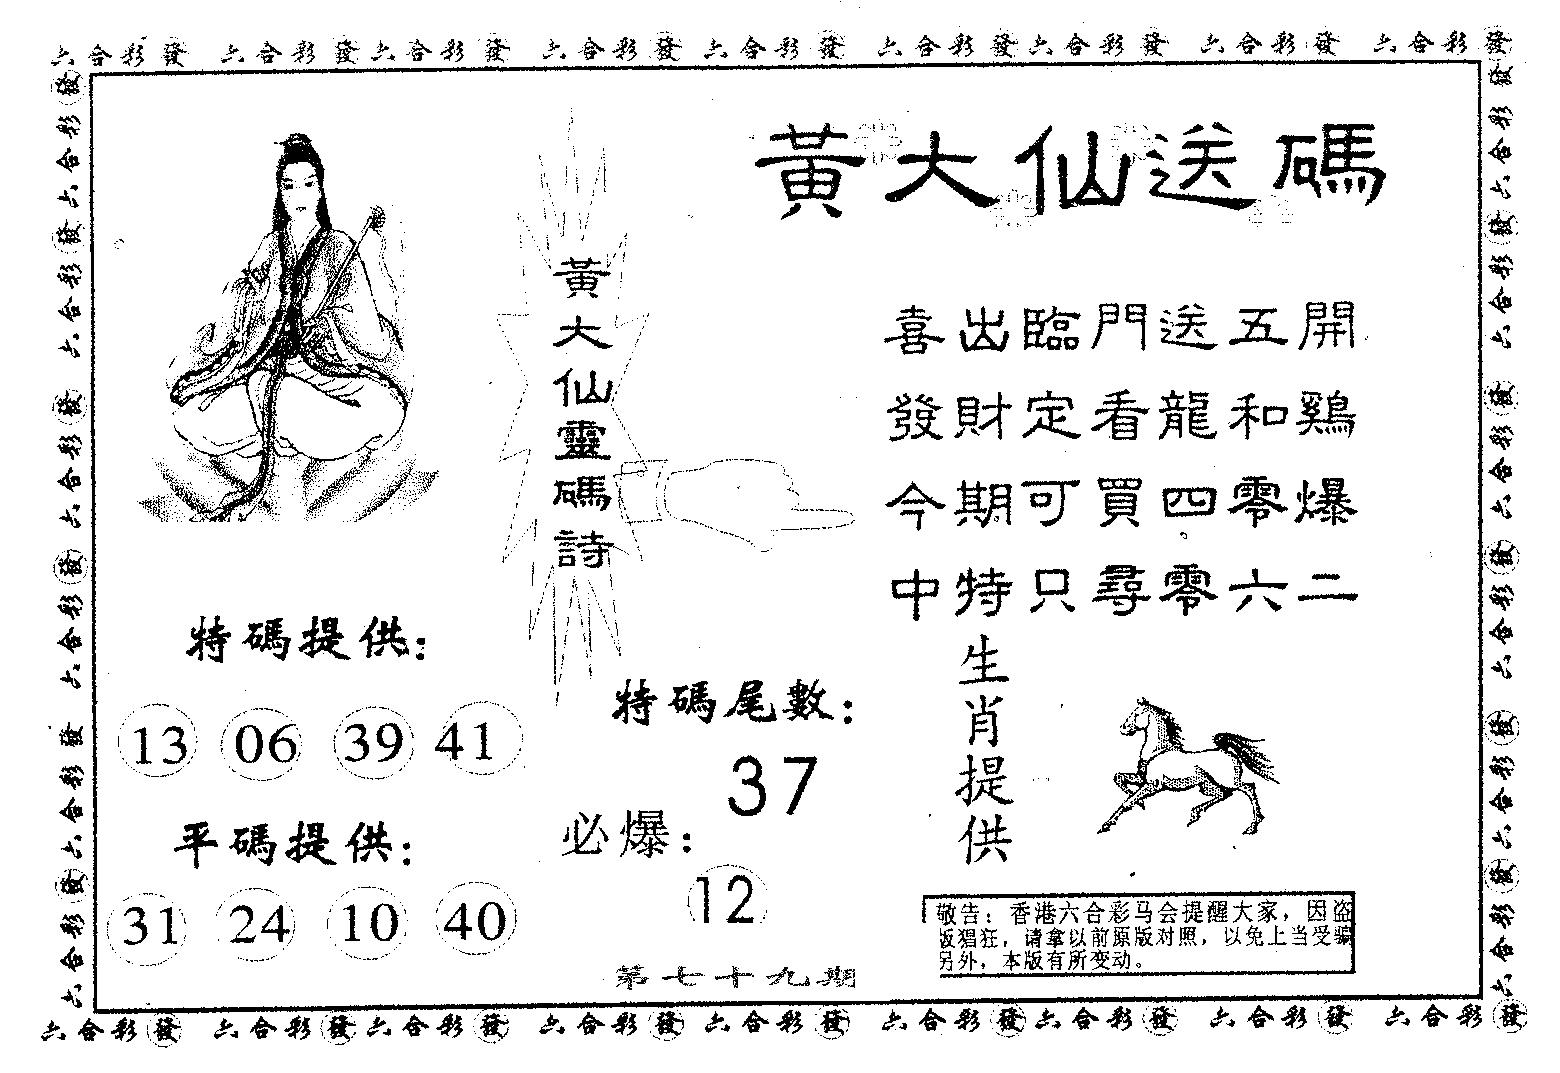 六合彩發 六合彩發 六合彩發 六合彩發 六合彩發 六合彩發 六合彩發 六合彩發 六合彩發
黃大仙送碼
黃大仙靈碼詩
喜出臨門送五開
發財定看龍和鷄
今期可買四零爆
中特只尋零六二
特碼提供：
13 06 39 41
平碼提供：
31 24 10 40
特碼尾數：
37
必爆：
12
生肖提供
敬告：香港六合彩马会提醒大家，因盗
版猖狂，请拿以前原版对照，以免上当受骗
另外，本版有所变动。
第七十九期
六合彩發 六合彩發 六合彩發 六合彩發 六合彩發 六合彩發 六合彩發 六合彩發 六合彩發
六合彩發 六合彩發 六合彩發 六合彩發 六合彩發 六合彩發
六合彩發 六合彩發 六合彩發 六合彩發 六合彩發 六合彩發